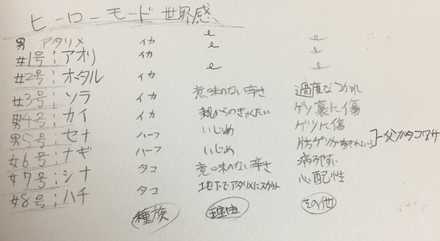 ヒーローモード世界感
男 アタリメ イカ
女1号:アオリ イカ
女2号:ホタル イカ
女3号:ソラ イカ 意味のない辛さ 過度なつかれ
男4号:カイ イカ 親からのぎゃくたい ゲソ裏に傷
男5号:セナ ハーフ いじめ ゲソに傷
女6号:ナギ ハーフ いじめ 父がタコワサ
女7号:シナ タコ 意味のない辛さ 病みやすい
女8号:ハチ タコ 地下でアタリメにスカウト 心配性
種族 理由 その他